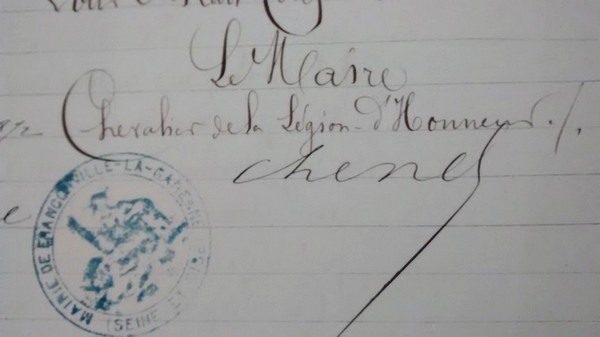 Le Maire
Chevalier de la Légion-d'Honneur./.
chene
MAIRIE DE FRANCONVILLE-LA-GARENNE
(SEINE ET OISE)